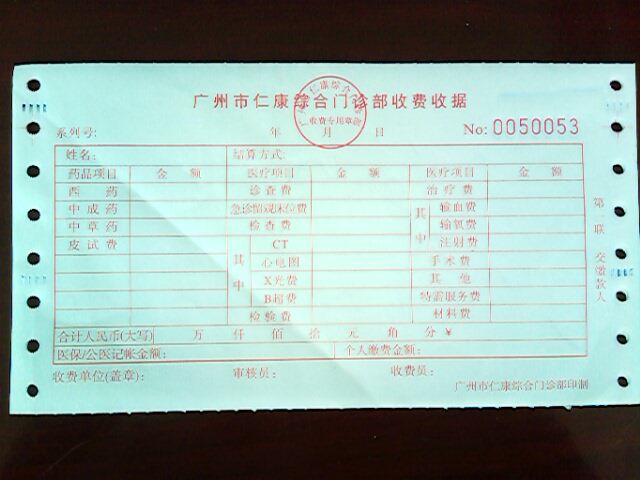 广州市仁康综合门诊部收费收据
系列号: 年 月 日 No: 0050053
姓名: 结算方式:
药品项目 金 额 医疗项目 金 额 医疗项目 金 额
西 药 诊 查 费 治 疗 费
中 成 药 急诊留观床位费 其中 输血费
中 草 药 检 查 费 输氧费
皮 试 费 其中 CT 注射费
心电图 手 术 费
X光费 其 他
B超费 特需服务费
检 验 费 材 料 费
合计人民币(大写) 万 仟 佰 拾 元 角 分 ¥
医保/公医记帐金额: 个人缴费金额:
收费单位(盖章): 审核员: 收费员:
广州市仁康综合门诊部印制
第二联 交缴款人
广州市仁康综合门诊部
收费专用章